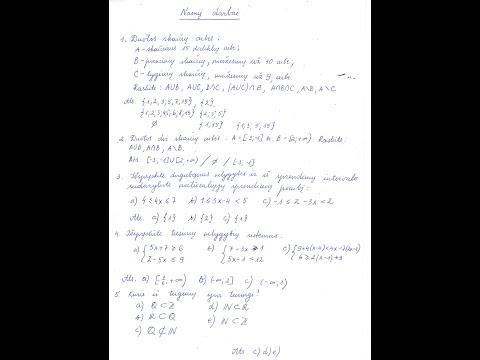 Namų darbai
1. Duotos skaičių aibės:
A-skaičiaus 15 daliklių aibė,
B-pirminių skaičių, mažesnių už 10 aibė,
C-lyginių skaičių, mažesnių už 9, aibė.
Raskite: A∪B, A∪C, B∩C, (A∪C)∩B, A∩B∩C, A\B, A\C
Ats. {1;2;3;5;7;15}, {2}
∅ {1;15} {1;3;5;15}
2. Duotos dvi skaičių aibės: A=[-3;-1] ir B=[2;+∞) Raskite:
A∪B, A∩B, A\B.
Ats. ∅
3. Išspręskite dvigubąsias nelygybes ir iš sprendinių intervalo
sudarykite natūraliųjų sprendinių poaibį:
a) 4≤4x≤7 b) 1≤3x-4<5 c) -1≤2-3x<2
Ats. a) {1} b) {2} c) {1}
4. Išspręskite tiesinių nelygybių sistemas:
a) {5x+7≥6 b) {7-3x>1
2-5x≤9 5x-1≤12
Ats. c) (-∞;1)
5. Kurie iš teiginių yra teisingi?
a) ℚ⊂ℤ d) ℕ⊂ℝ
b) ℝ⊂ℚ e) ℕ⊂ℤ
c) ℚ⊄ℕ
Ats. c) d) e)